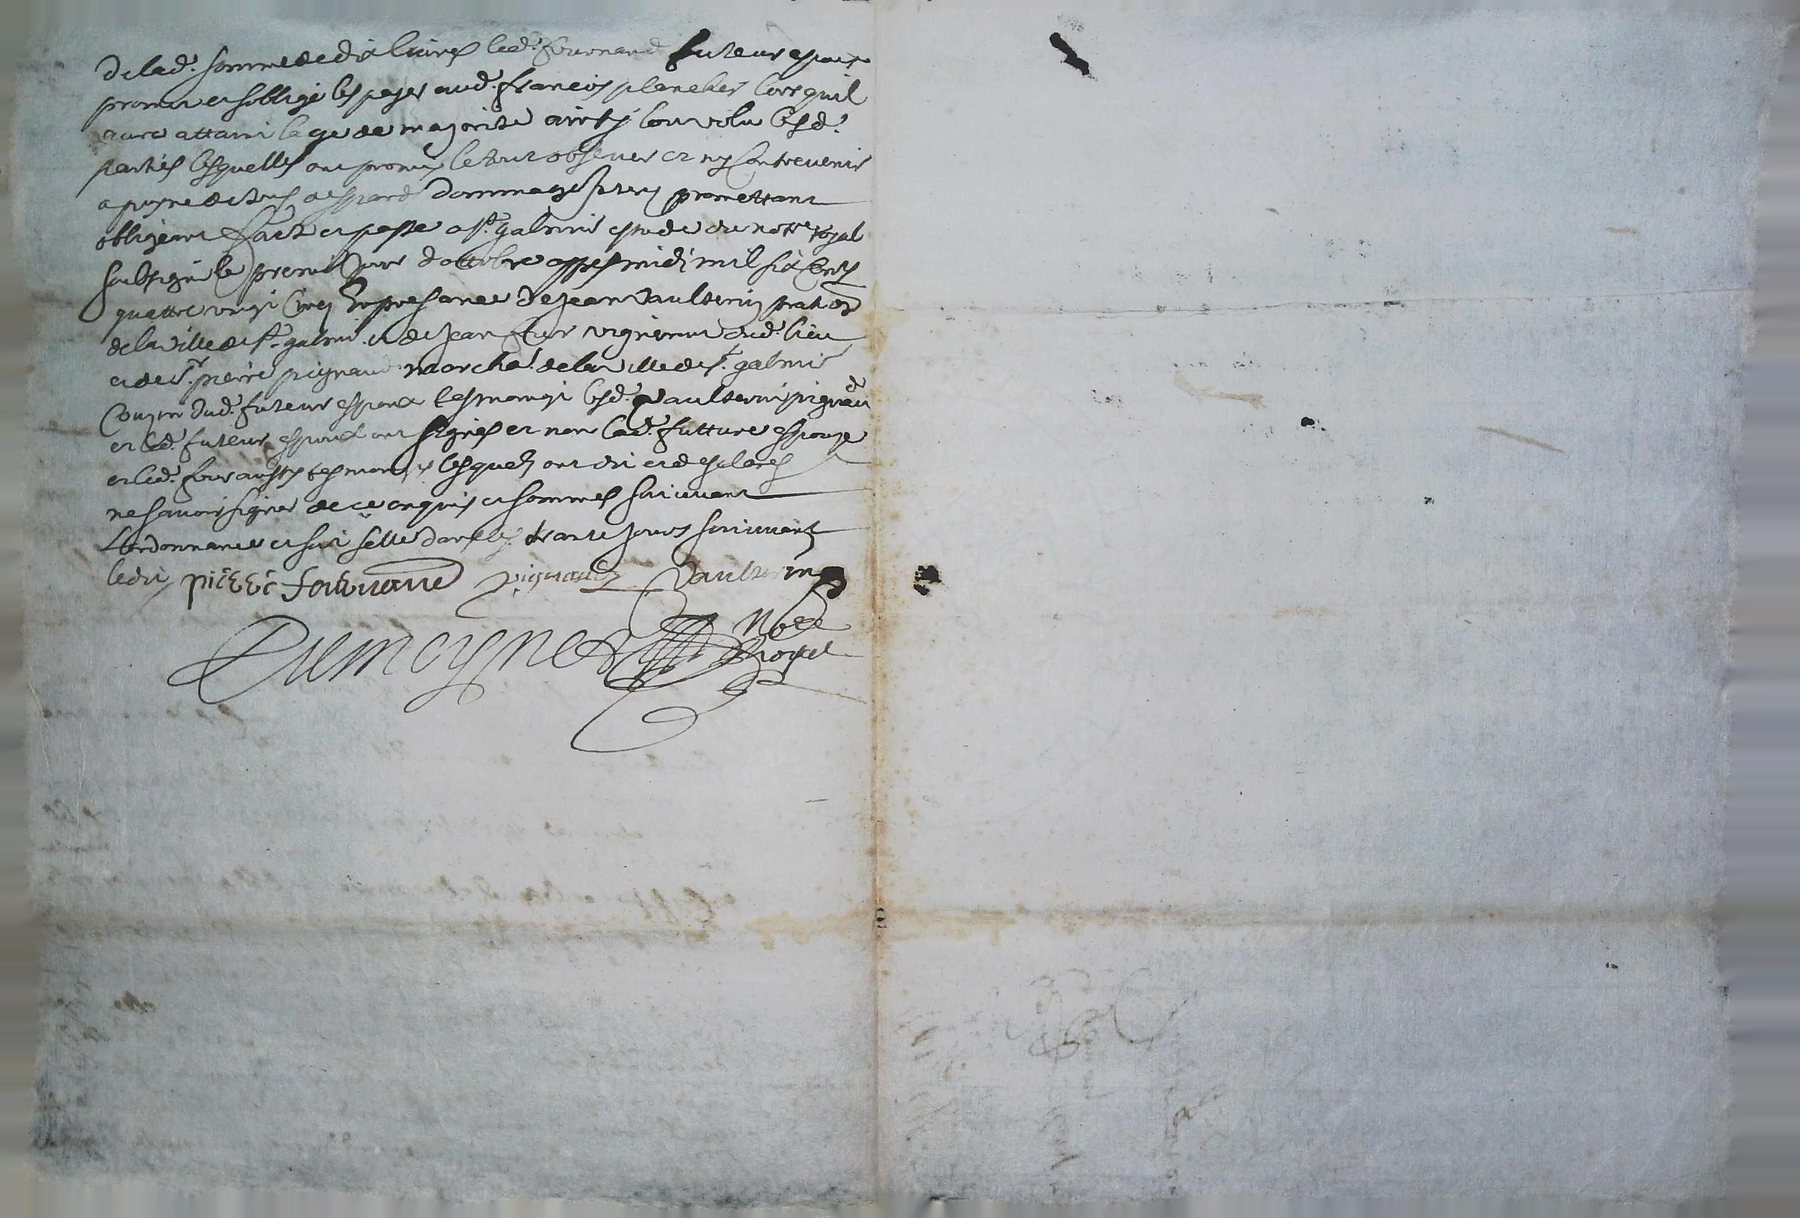 de lad. somme de dix livres led. fournand futeur espoux
promis et sobligé les payer aud. francois planchet lors quil
aura attaint lage de majorite ainsy lon volu lesd.
parties lesquelles ont promis le tout observer et ny contrevenir
a peyne de tous despandz dommages promettant
obligeant faict et passé a st. galmis estude du notre royal
soubsigné le premier jour doctobre appres midi mil six centz
quattre vingt cinq en presance de jean vaulterin praticn
de la ville de st. galmis et de jean vigneron dud. lieu
et de sr. pierre pignaud marchat. de la ville de st. galmis
couzin dud. futeur espoux tesmoingz lesd. vaulterin pignaud
et led. futeur espoux ont signés et non lad. future espouze
et led. tesmoingz lesquelz ont dit et desclarés
ne savoir signer de ce enquis et sommés suivant
lordonnance et sera sellé dans les trante jours suivant
ledit pierre fournand pignaud vaulterin
Dumoyner Nore
royal